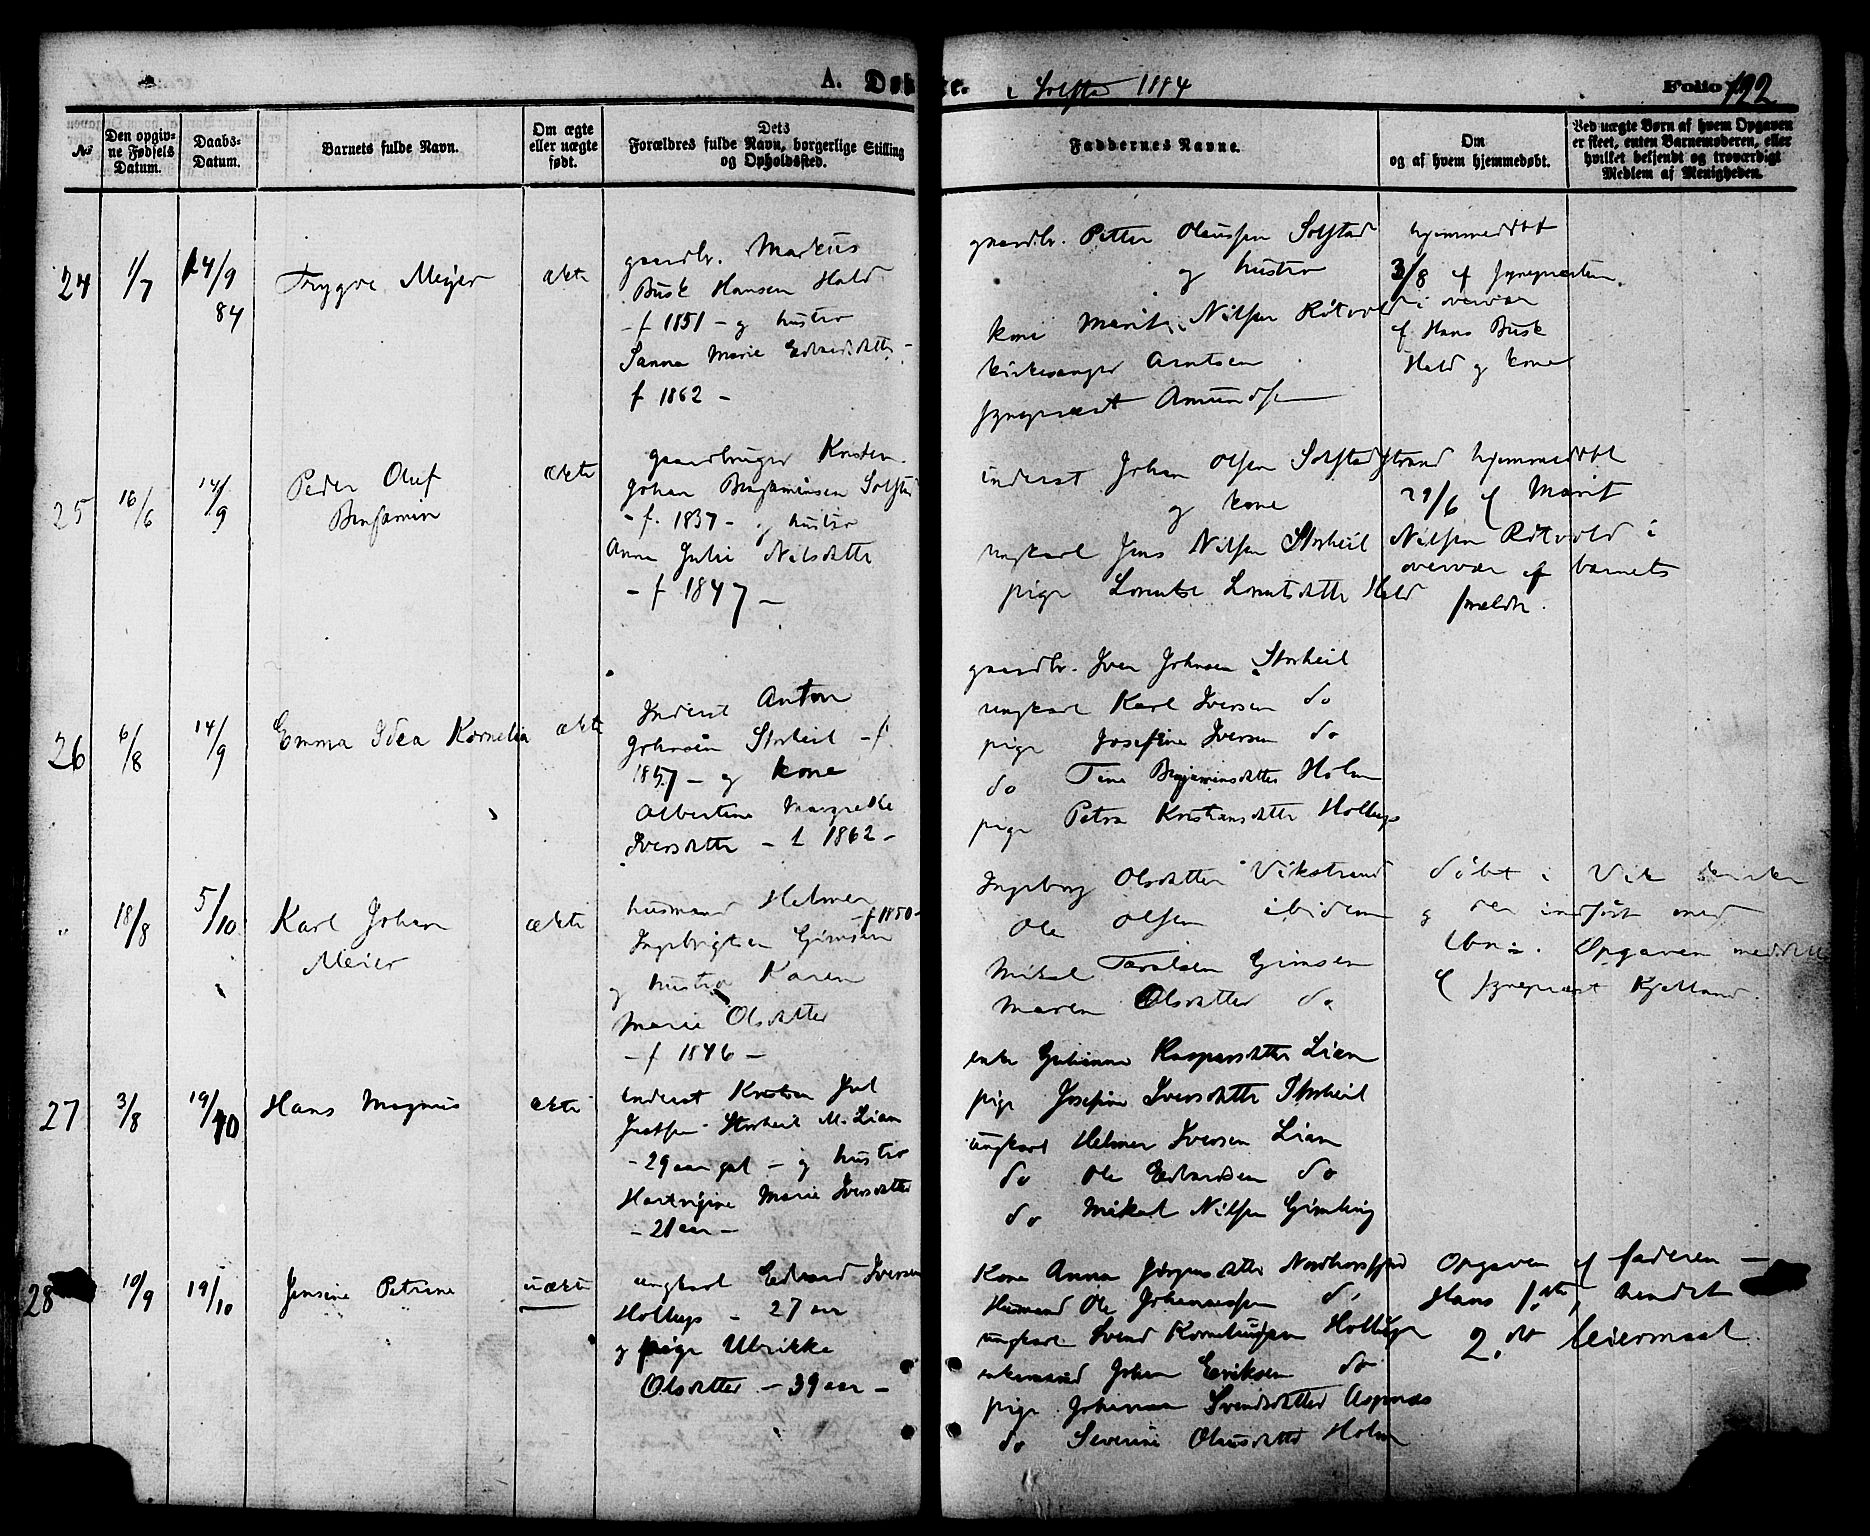 A. Døbte. i Solstad 1884 Folio 192
№
Den opgivne Fødsels Datum.
Daabs-Datum.
Barnets fulde Navn.
Om ægte eller uægte født.
Dets Forældres fulde Navn, borgerlige Stilling og Opholdssted.
Faddernes Navne.
Om og af hvem hjemmedøbt.
Ved uægte Børn af hvem Opgaven er skeet, enten Barnemoderen, eller hvilket bekjendt og troværdigt Medlem af Menigheden.
24 1/7 14/9 84 Trygve Meyer ækte
gaardbr. Markus
Busk Hansen Hald
- f 1851 - og hustro
Sanna Marie Edvardsdatter -
f 1862 -
gaardbr. Petter Olaussen Solstad
og hustro
kone Marit Nilsen Rötvold
kirkesanger Arntsen
sognepræst Amundsen
hjemmedöbt
3/8 af sognepræsten
i overvær
af Hans Busk
Hald og kone
25 16/6 14/9 Peder Oluf
Benjamin
ækte
gaardbruger Kristen
Johan Benjaminsen Solstad
- f. 1837 - og hustro
Anna Julie Nilsdatter
- f 1847 -
inderst Johan Olsen Solstadstrand
og kone
ungkarl Jens Nilsen Storheil
pige Lorentse Lorntsdatter Hald
hjemmedöbt
29/6 af Marit
Nilsen Rötvold i
overvær af barnets
forældre.
26 6/8 14/9 Emma Idea Kornelia ækte
Inderst Anton
Johnsen Storheil - f.
1857 - og kone
Albertine Margrethe
Iversdatter - f 1862 -
gaardbr. Iver Johnsen Storheil
ungkarl Karl Iversen do
pige Josefine Iversen do
do Tine Benjaminsdatter Holm
pige Petra Kristiansdatter Hollup
" 18/8 5/10 Karl Johan
Meier
ækte
husmand Helmer
- f 1850 -
Ingebrigtsen Gimsen
og hustro Karen
Marie Olsdatter
- f 1846 -
Ingeborg Olsdatter Vikstrand
Ole Olsen ibidem
Mikal Gimsen
Maren Olsdatter do
döbt i Vik
og der indfört med
Opgaven meddelt
af sognepræst Kjelland.
27 3/8 19/10 Hans Magnus ækte
inderst Kristen Juel
Storheil M. Lian
- 29 aar gal - og hustro
Hartvigine Marie Iversdatter
- 21 aar -
enke Julianna Kaspersdatter Lian
pige Josefine Iversdatter Storheil
ungkarl Helmer Iversen Lian
do Ole Edvardsen do
do Mikal Nilsen Gimling
28 10/9 19/10 Jensine Petrine uækte
ungkarl Edvard Iversen
Hollup - 27 aar
og pige Ulrikke
Olsdatter - 39 aar -
Kone Anna Jörgensdatter Nordhorsfjord
Husmand Ole Johannessen do
ungkarl Svend Korneliussen Hollup
enkemand Johan Eriksen do
pige Johanna Svendsdatter Aspnæs
do Severine Olausdatter Holm
Opgaven af faderen -
Hans 1ste, hendes
2. det leiermaal.